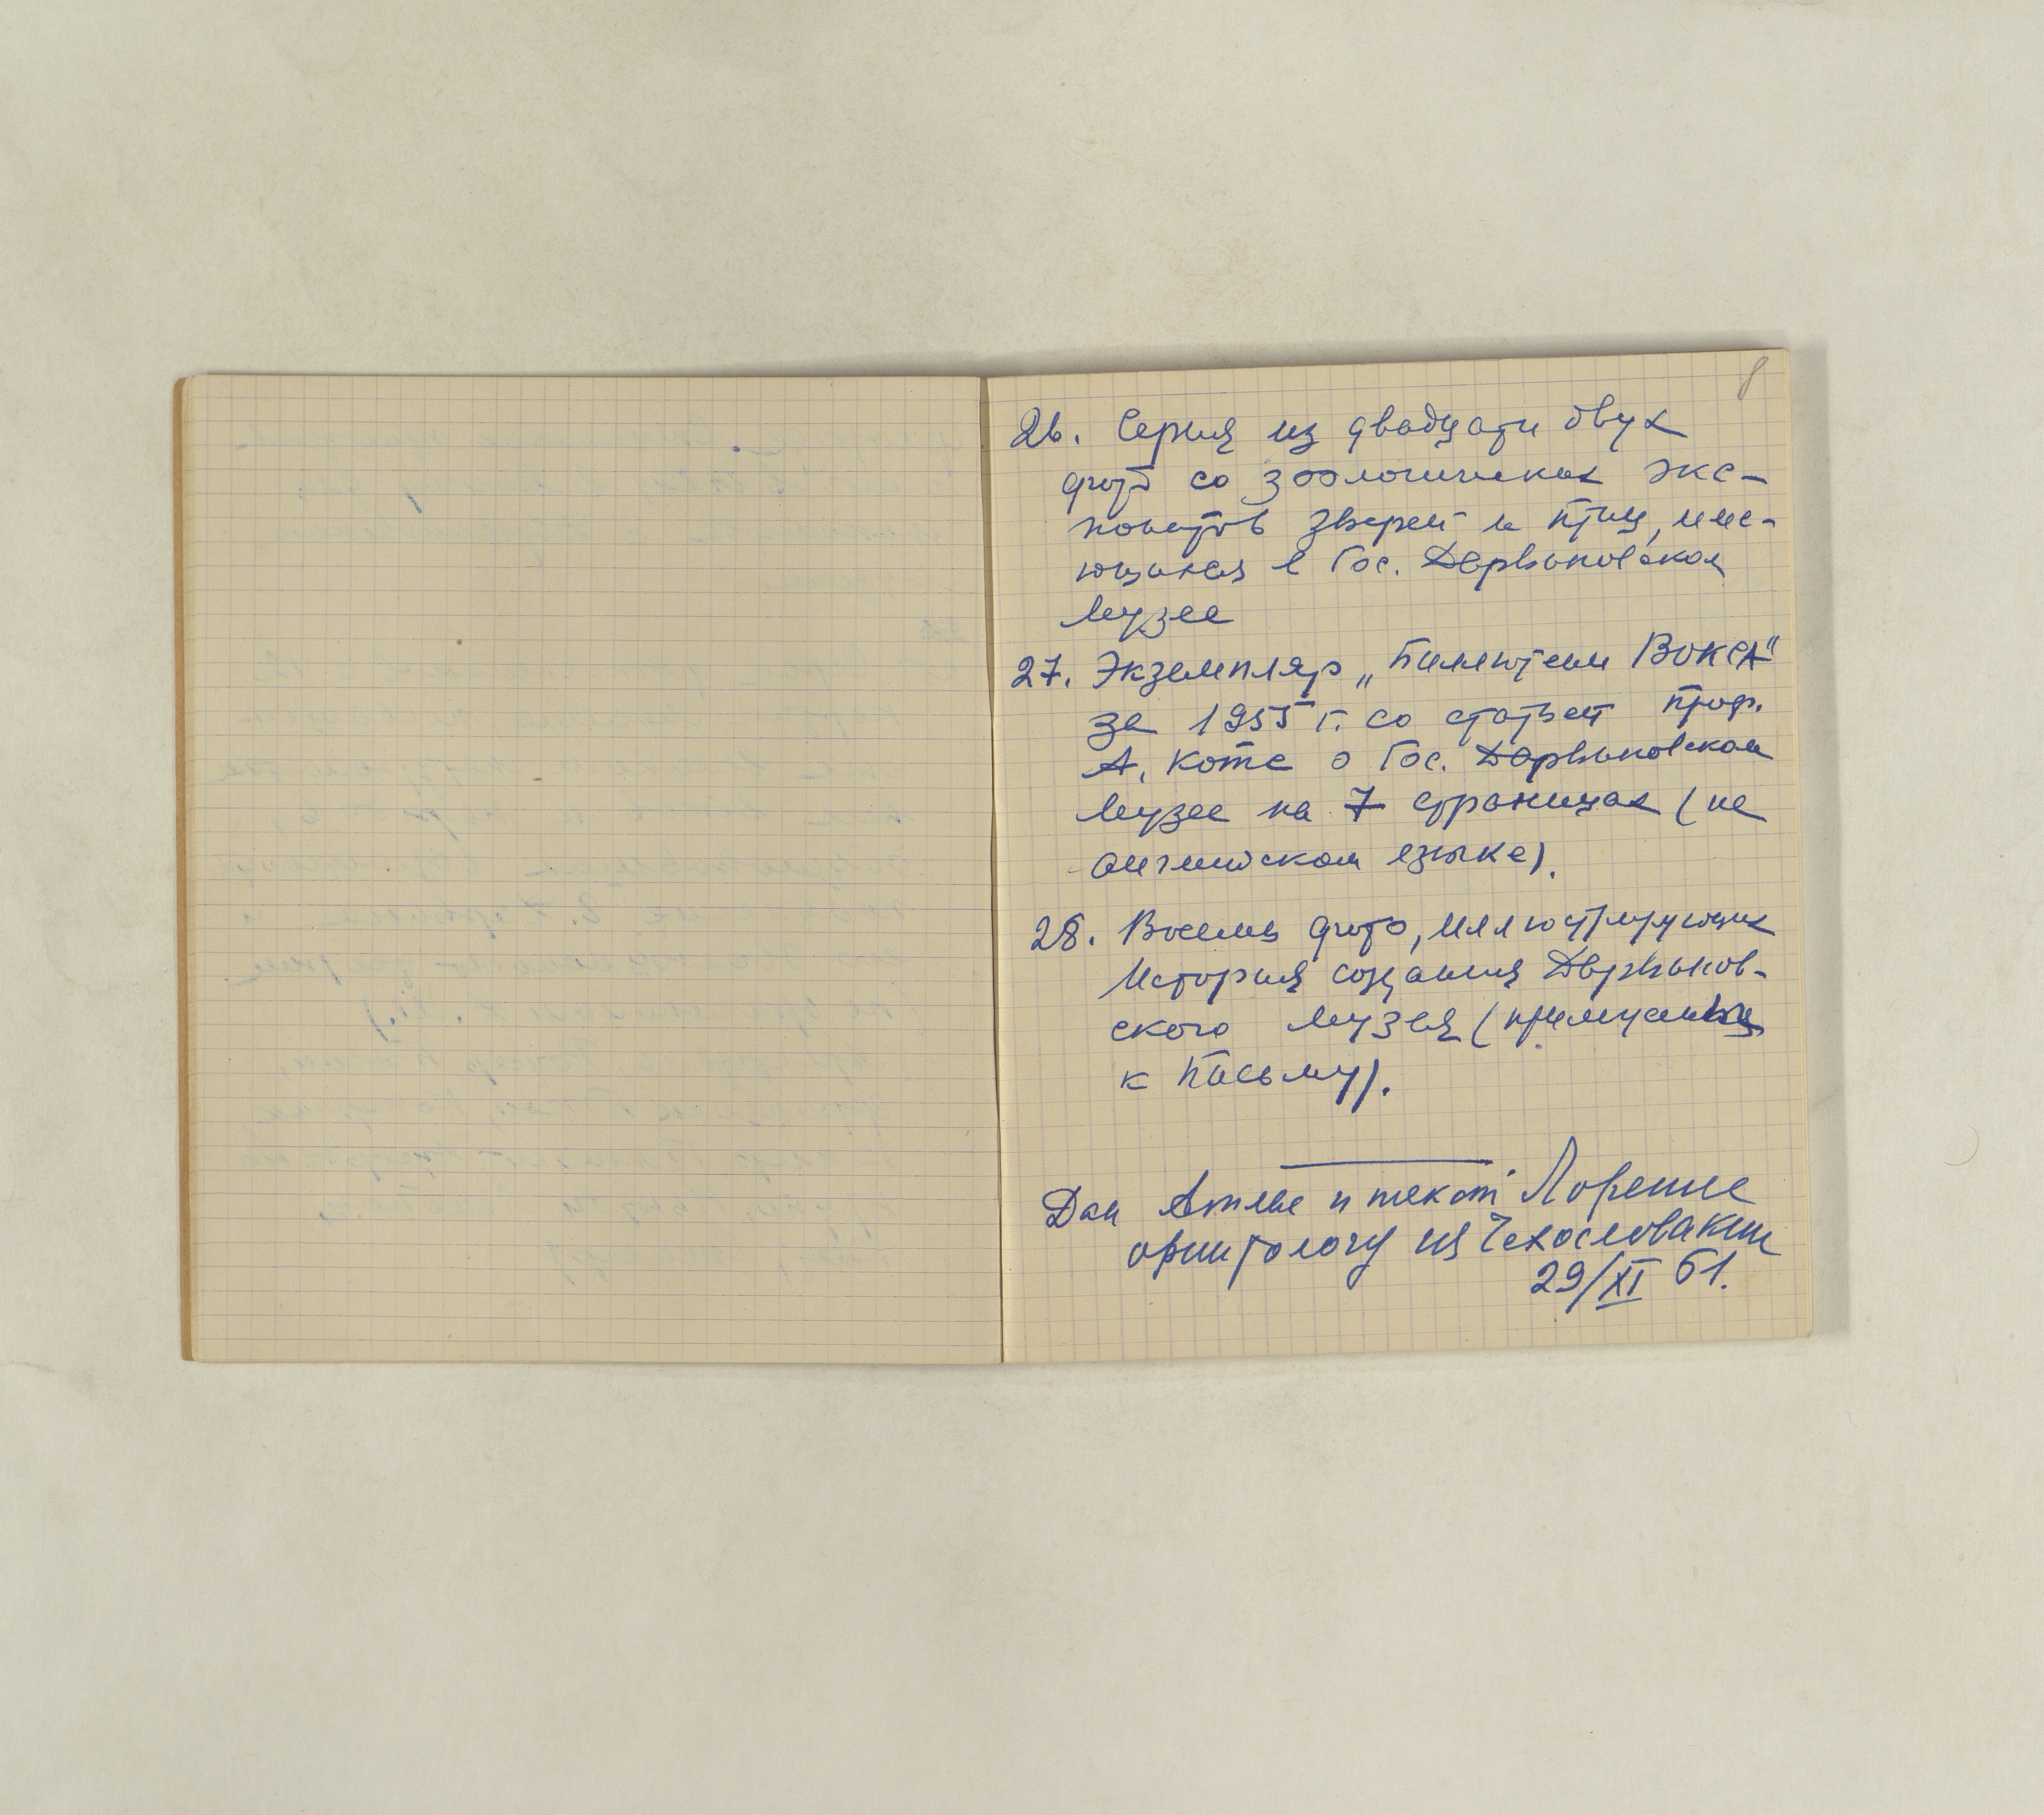 8
26. Серия из двадцати двух
фото со зоологических экс-
понатов зверей и птиц, име-
ющихся в Гос. Дарвиновском
Музее
27. Экземпляр „Бюллетени ВОКСА"
за 1955 г. со статьей проф.
А. Котс о Гос. Дарвиновском
Музее на 7 страницах (на
английском языке).
28. Восемь фото, иллюстрирующих
История создания Дарвинов-
ского Музея (
к Письму).
Дан и текст Лоренце
орнитологу из Чехословакии
29/XI 61.